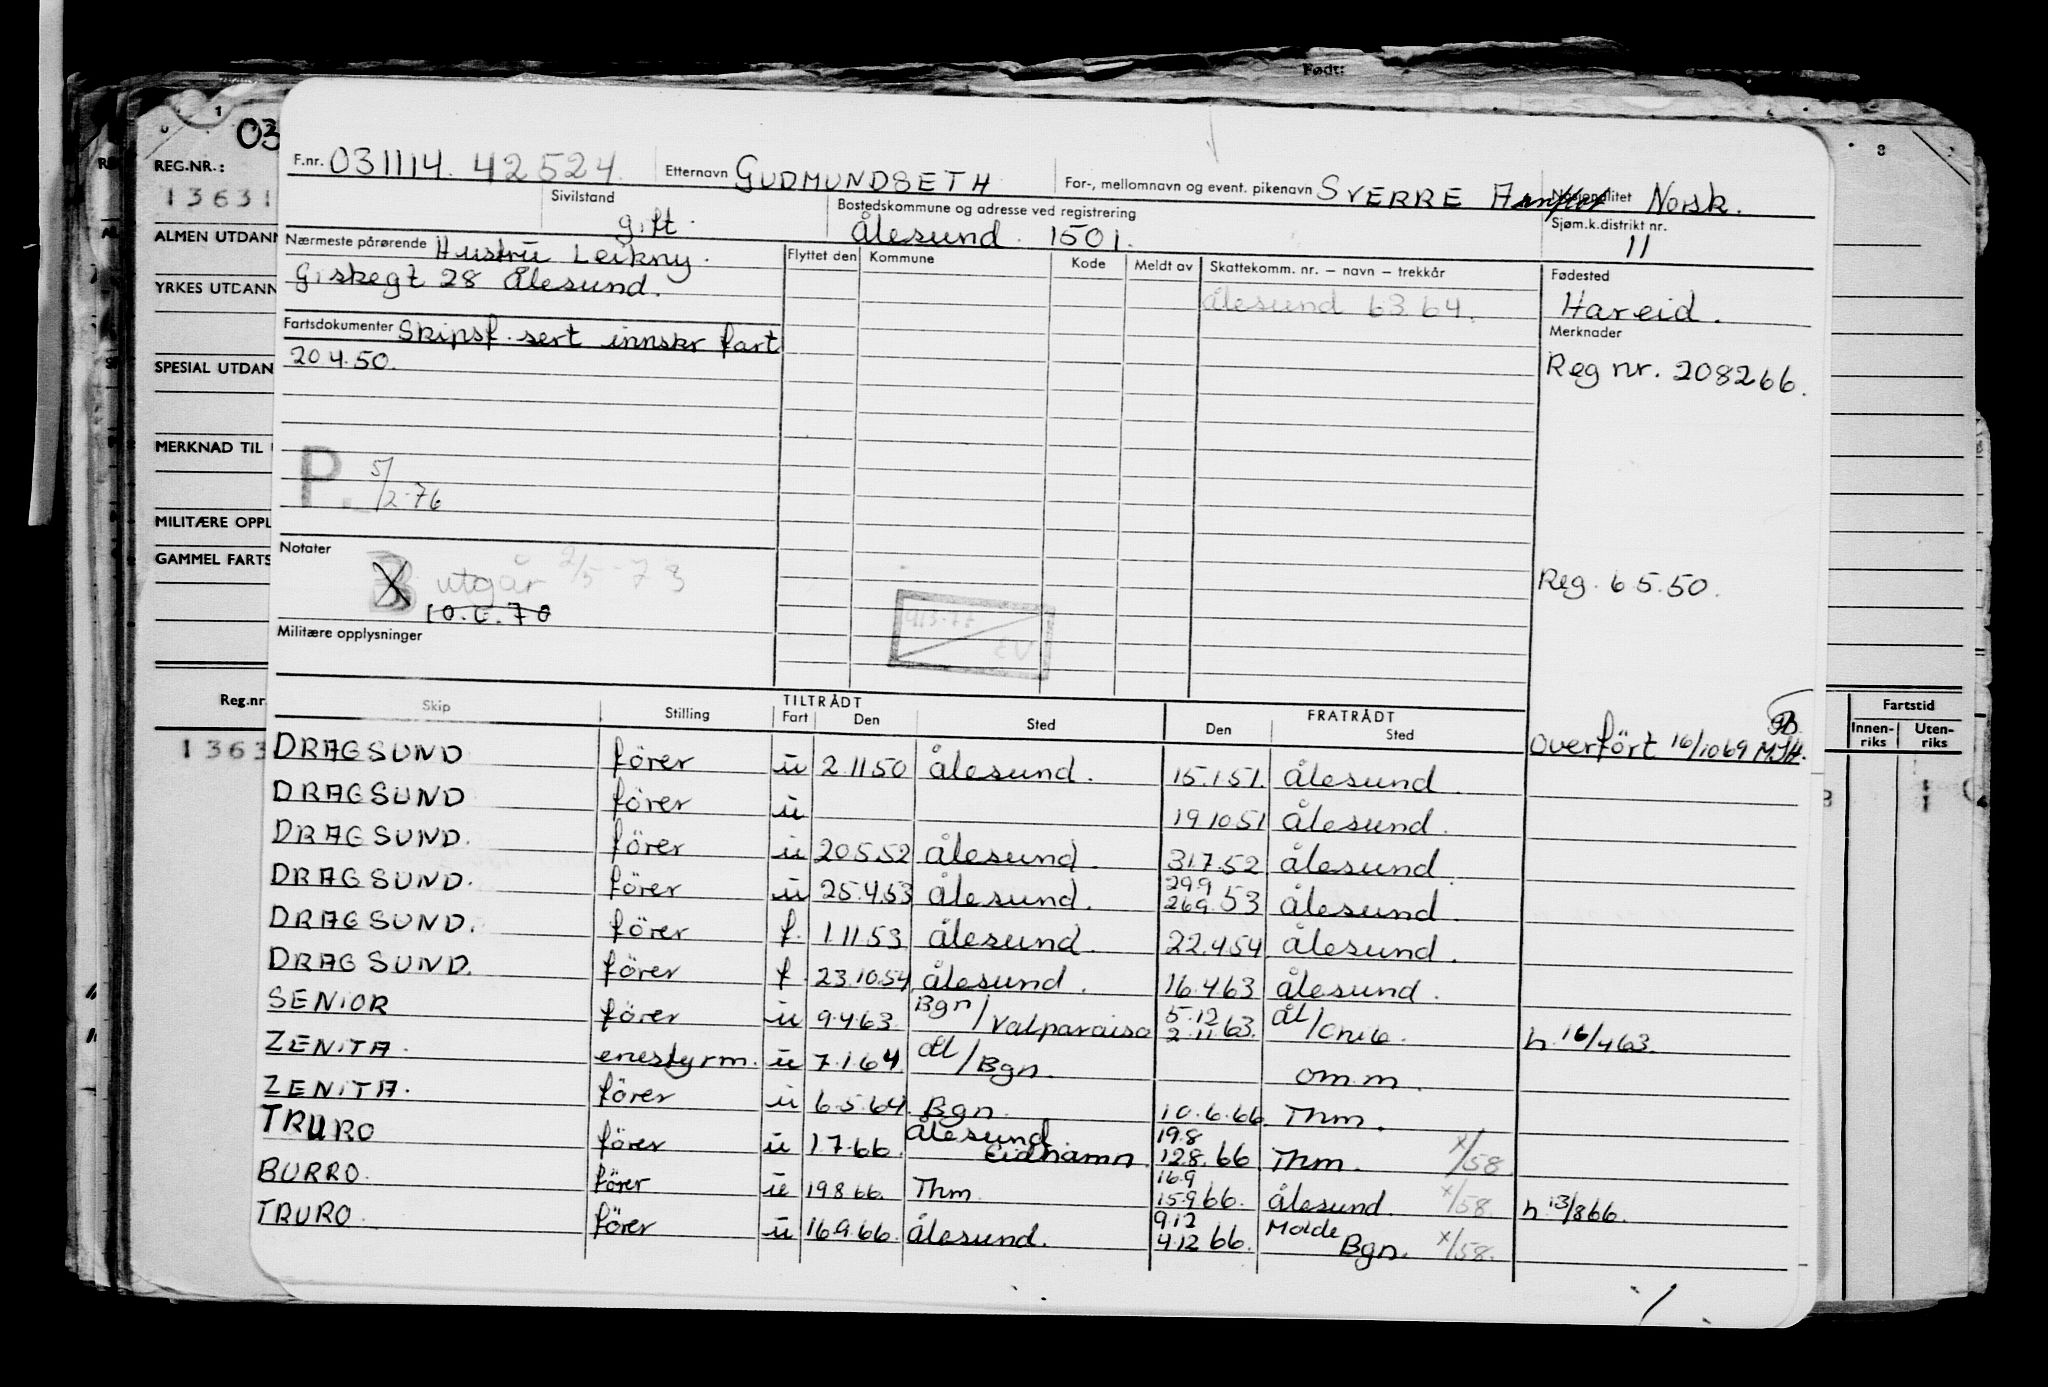 Født:
03
REG.NR.:
13631
ALMEN UTDANN
YRKES UTDANN
SPESIAL UTDAN
MERKNAD TIL
MILITÆRE OPPL
GAMMEL FARTS
Reg.nr.
1363
8
Fartstid
Innen-riks Uten-riks
F.nr. 031114. 42524. Etternavn GUDMUNDSETH For-, mellomnavn og event. pikenavn SVERRE Nasjonalitet Norsk.
Sivilstand gift. Bostedskommune og adresse ved registrering Ålesund. 1501. Sjøm.k.distrikt nr. 11
Nærmeste pårørende Hustru Leikny.
Giskegt 28 Ålesund.
Flyttet den Kommune Kode Meldt av Skattekomm. nr. – navn – trekkår
Ålesund 63 64.
Fødested
Hareid.
Fartsdokumenter Skipsf. sert innskr fart
20.4.50.
Merknader
Reg nr. 208266.
P. 5/2-76
Notater
B utgår 2/5-73
Reg. 6.5.50.
Militære opplysninger
Overfört 16/10 69
Skip Stilling TILTRÅDT Fart Den Sted FRATRÅDT Den Sted
DRAGSUND förer u 2.11 50 Ålesund. 15.1.51. Ålesund.
DRAGSUND förer u 19 10 51 Ålesund.
DRAGSUND. förer u 20 5.52 Ålesund. 31.7.52 Ålesund.
DRAGSUND. förer u 25.4.53 Ålesund. 29.9 26.9. 53 Ålesund.
DRAGSUND. förer f. 1.11 53 Ålesund. 22.4.54 Ålesund.
DRAGSUND. förer f. 23.10.54 Ålesund. 16.4 63 Ålesund.
SENIOR förer u 9.4.63. Bgn/Valparaiso 5.12 2.11 63. Ål/ h. 16/4 63.
ZENITA. enestyrm. u 7.1.64 Ål/Bgn. om.m.
ZENITA. förer u 6.5.64. Bgn. 10.6.66. Thm.
TRURO förer u 1.7.66. Ålesund. Eidhamn. 19.8 12.8. 66 Thm. x/58
BURRO. förer u 19 8 66. Thm. 16.9 15.9 66. Ålesund. x/58. h. 13/8 66.
TRURO. förer u 16.9.66. Ålesund. 9.12 4.12 66. Molde Bgn. x/58.